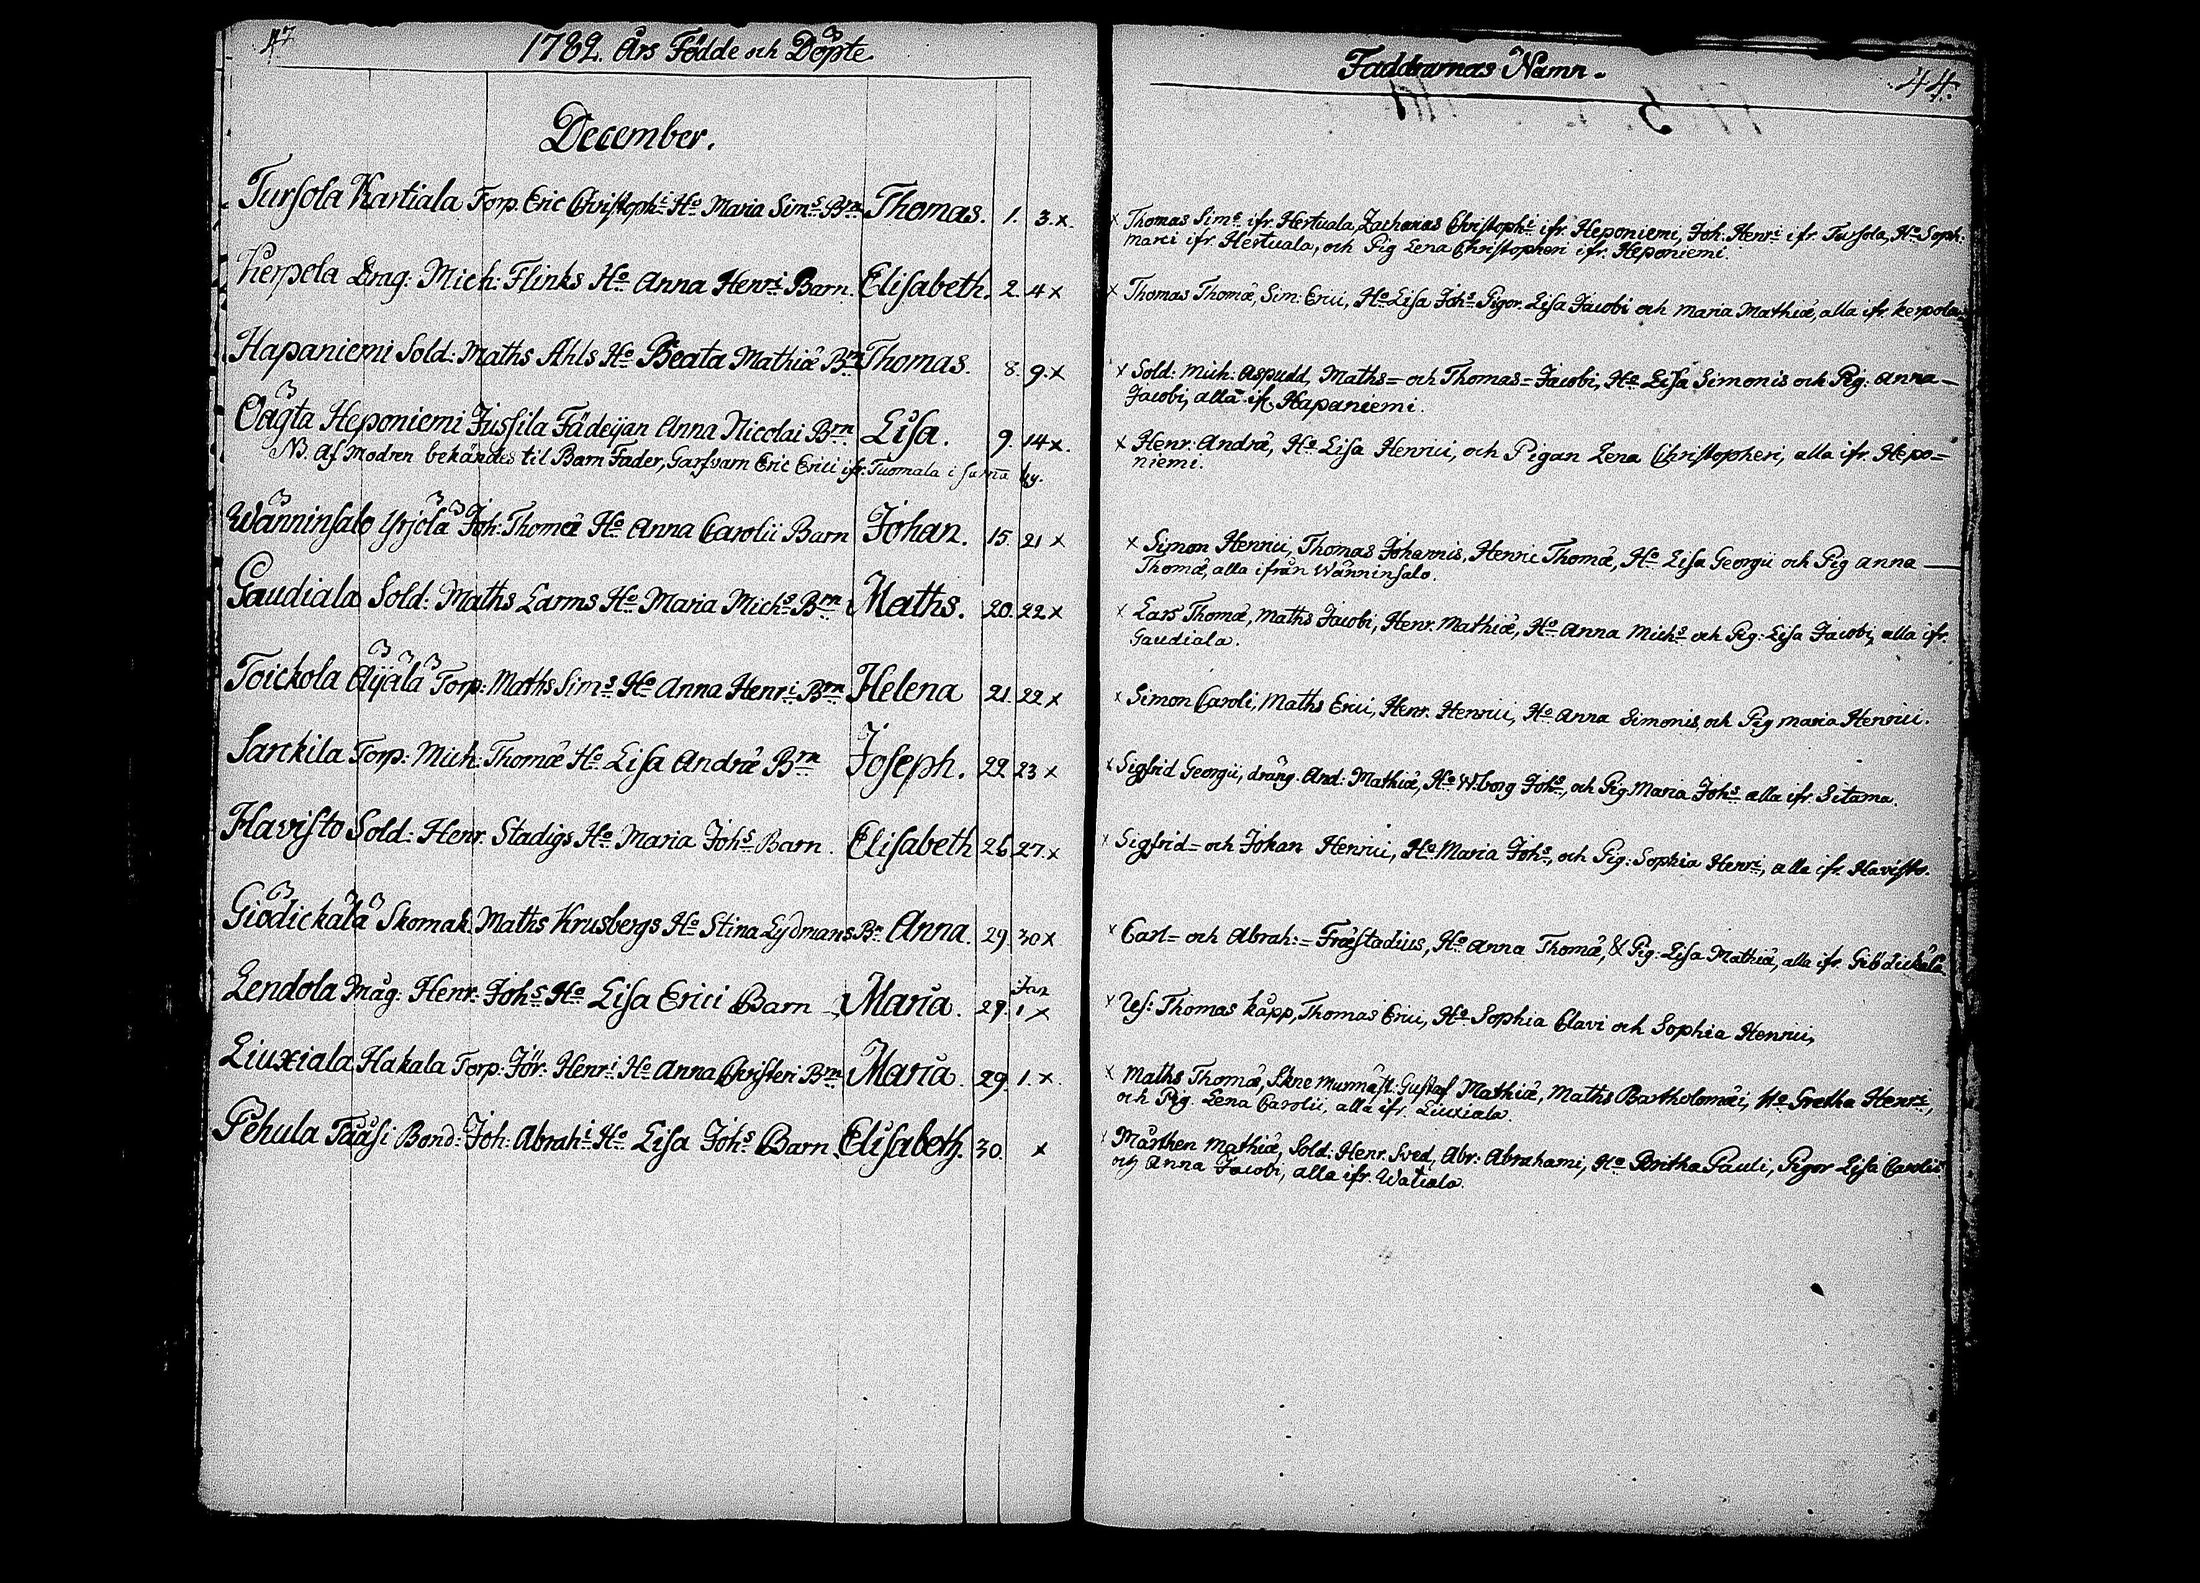 1782. Års Födde och Döpte
December.
Tursola Kartiala Torp. Eric Christophi Ho Maria Sims Brn Thomas. 1. 3. x.
Kerpola Drag: Mich: Flinks Ho Anna Henri Barn. Elisabeth. 2. 4 x
Hapaniemi Sold: Maths Ahls Ho Beata Mathiæ Brn Thomas. 8. 9. x
Heponiemi Jussila Anna Nicolai Brn Lisa. 9. 14 x.
NB. Af Modren bekändes til Barn Fader, Garfvarn Eric Erici ifr. Tuomala i sama by.
Wänninsalo Yrjölä Joh: Thomæ Ho Anna Carolii Barn Johan. 15. 21 x
Gaudiala Sold: Maths Larms Ho Maria Michs Brn Maths. 20. 22 x
Toickola Äijälä Torp: Maths Sims Ho Anna Henri Brn Helena 21. 22 x
Sarckila Torp: Mich: Thomæ Ho Lisa Andræ Brn Joseph. 22 23 x
Havisto Sold: Henr. Stadigs Ho Maria Johs Barn. Elisabeth 26 27. x
Giödickälä Skomak. Maths Krusbergs Ho Stina Lydmans Bn Anna. 29. 30 x
Jan
Lendola Måg: Henr. Johs Ho Lisa Erici Barn Maria. 29. 1 x
Liuxiala Hakala Torp: Jör: Henri Ho Anna Christeri Brn Maria. 29. 1. x.
Pehula Bond: Joh: Abrahi Ho Lisa Johs Barn Elisabeth. 30. x
Faddrarnas Namn.
44.
x Thomas Sims ifr. Hertuala, Zacharias Christophi ifr. Heponiemi, Joh: Henri ifr. Tursola, Ho Soph:
Marci ifr. Hertuala, och Pig Lena Christopheri ifr. Heponiemi.
x Thomas Thomæ, Sim: Erici, Ho Lisa Johs Pigor. Lisa Jacobi och Maria Mathiæ, alla ifr. Kerpola.
x Sold: Mich: Aspudd, Maths= och Thomas= Jacobi, Ho Lisa Simonis och Pig: Anna
Jacobi, alla ifr. Hapaniemi.
x Henr: Andræ, Ho Lisa Henrici, och Pigan Lena Christopheri, alla ifr. Hepo=
niemi.
x Simon Henrici, Thomas Johannis, Henric Thomæ, Ho Lisa Georgii och Pig Anna
Thomæ, alla ifrån Wänninsalo.
x Lars Thomæ, Maths Jacobi, Henr. Mathiæ, Ho Anna Michs och Pig: Lisa Jacobi, alla ifr.
Gaudiala.
x Simon Caroli, Maths Erici, Henr. Henrici, Ho Anna Simonis, och Pig Maria Henrici.
x Sigfrid Georgii, dräng. And: Mathiæ, Ho Wiborg Johs, och Pig Maria Johs alla ifr. Sitama.
x Sigfrid= och Johan Henrici, Ho Maria Johs, och Pig: Sophia Henri, alla ifr. Havisto.
x Carl= och Abrah:= Fræstadius, Ho Anna Thomæ, & Pig: Lisa Mathiæ, alla ifr. Giödickälä
x Thomas Kåpp, Thomas Erici, Ho Sophia Clavi och Sophia Henrici,
x Maths Thomæ, Gustaf Mathiæ, Maths Bartholomæi, Ho Gretha Henri,
och Pig. Lena Carolii, alla ifr. Liuxiala.
Mårthen Mathiæ, Sold: Henr. Sved, Abr: Abrahami, Ho Britha Pauli, Pigor Lisa Carolii
och Anna Jacobi, alla ifr. Watiala.